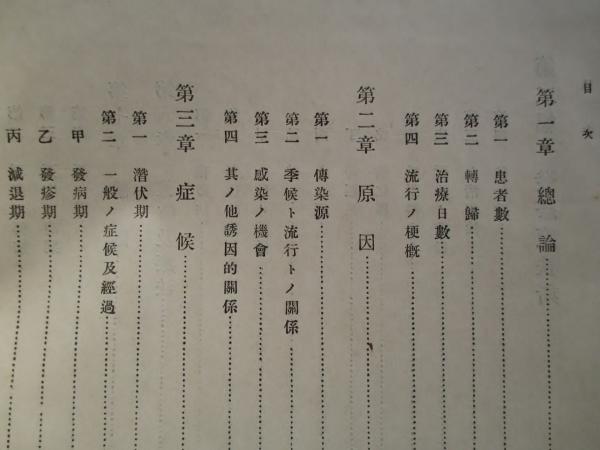 目次
第一章 總論
第一 患者數
第二 轉歸
第三 治療日數
第四 流行ノ梗概
第二章 原因
第一 傳染源
第二 季候ト流行トノ關係
第三 感染ノ機會
第四 其ノ他誘因的關係
第三章 症候
第一 潛伏期
第二 一般ノ症候及經過
甲 發病期
乙 發疹期
丙 減退期